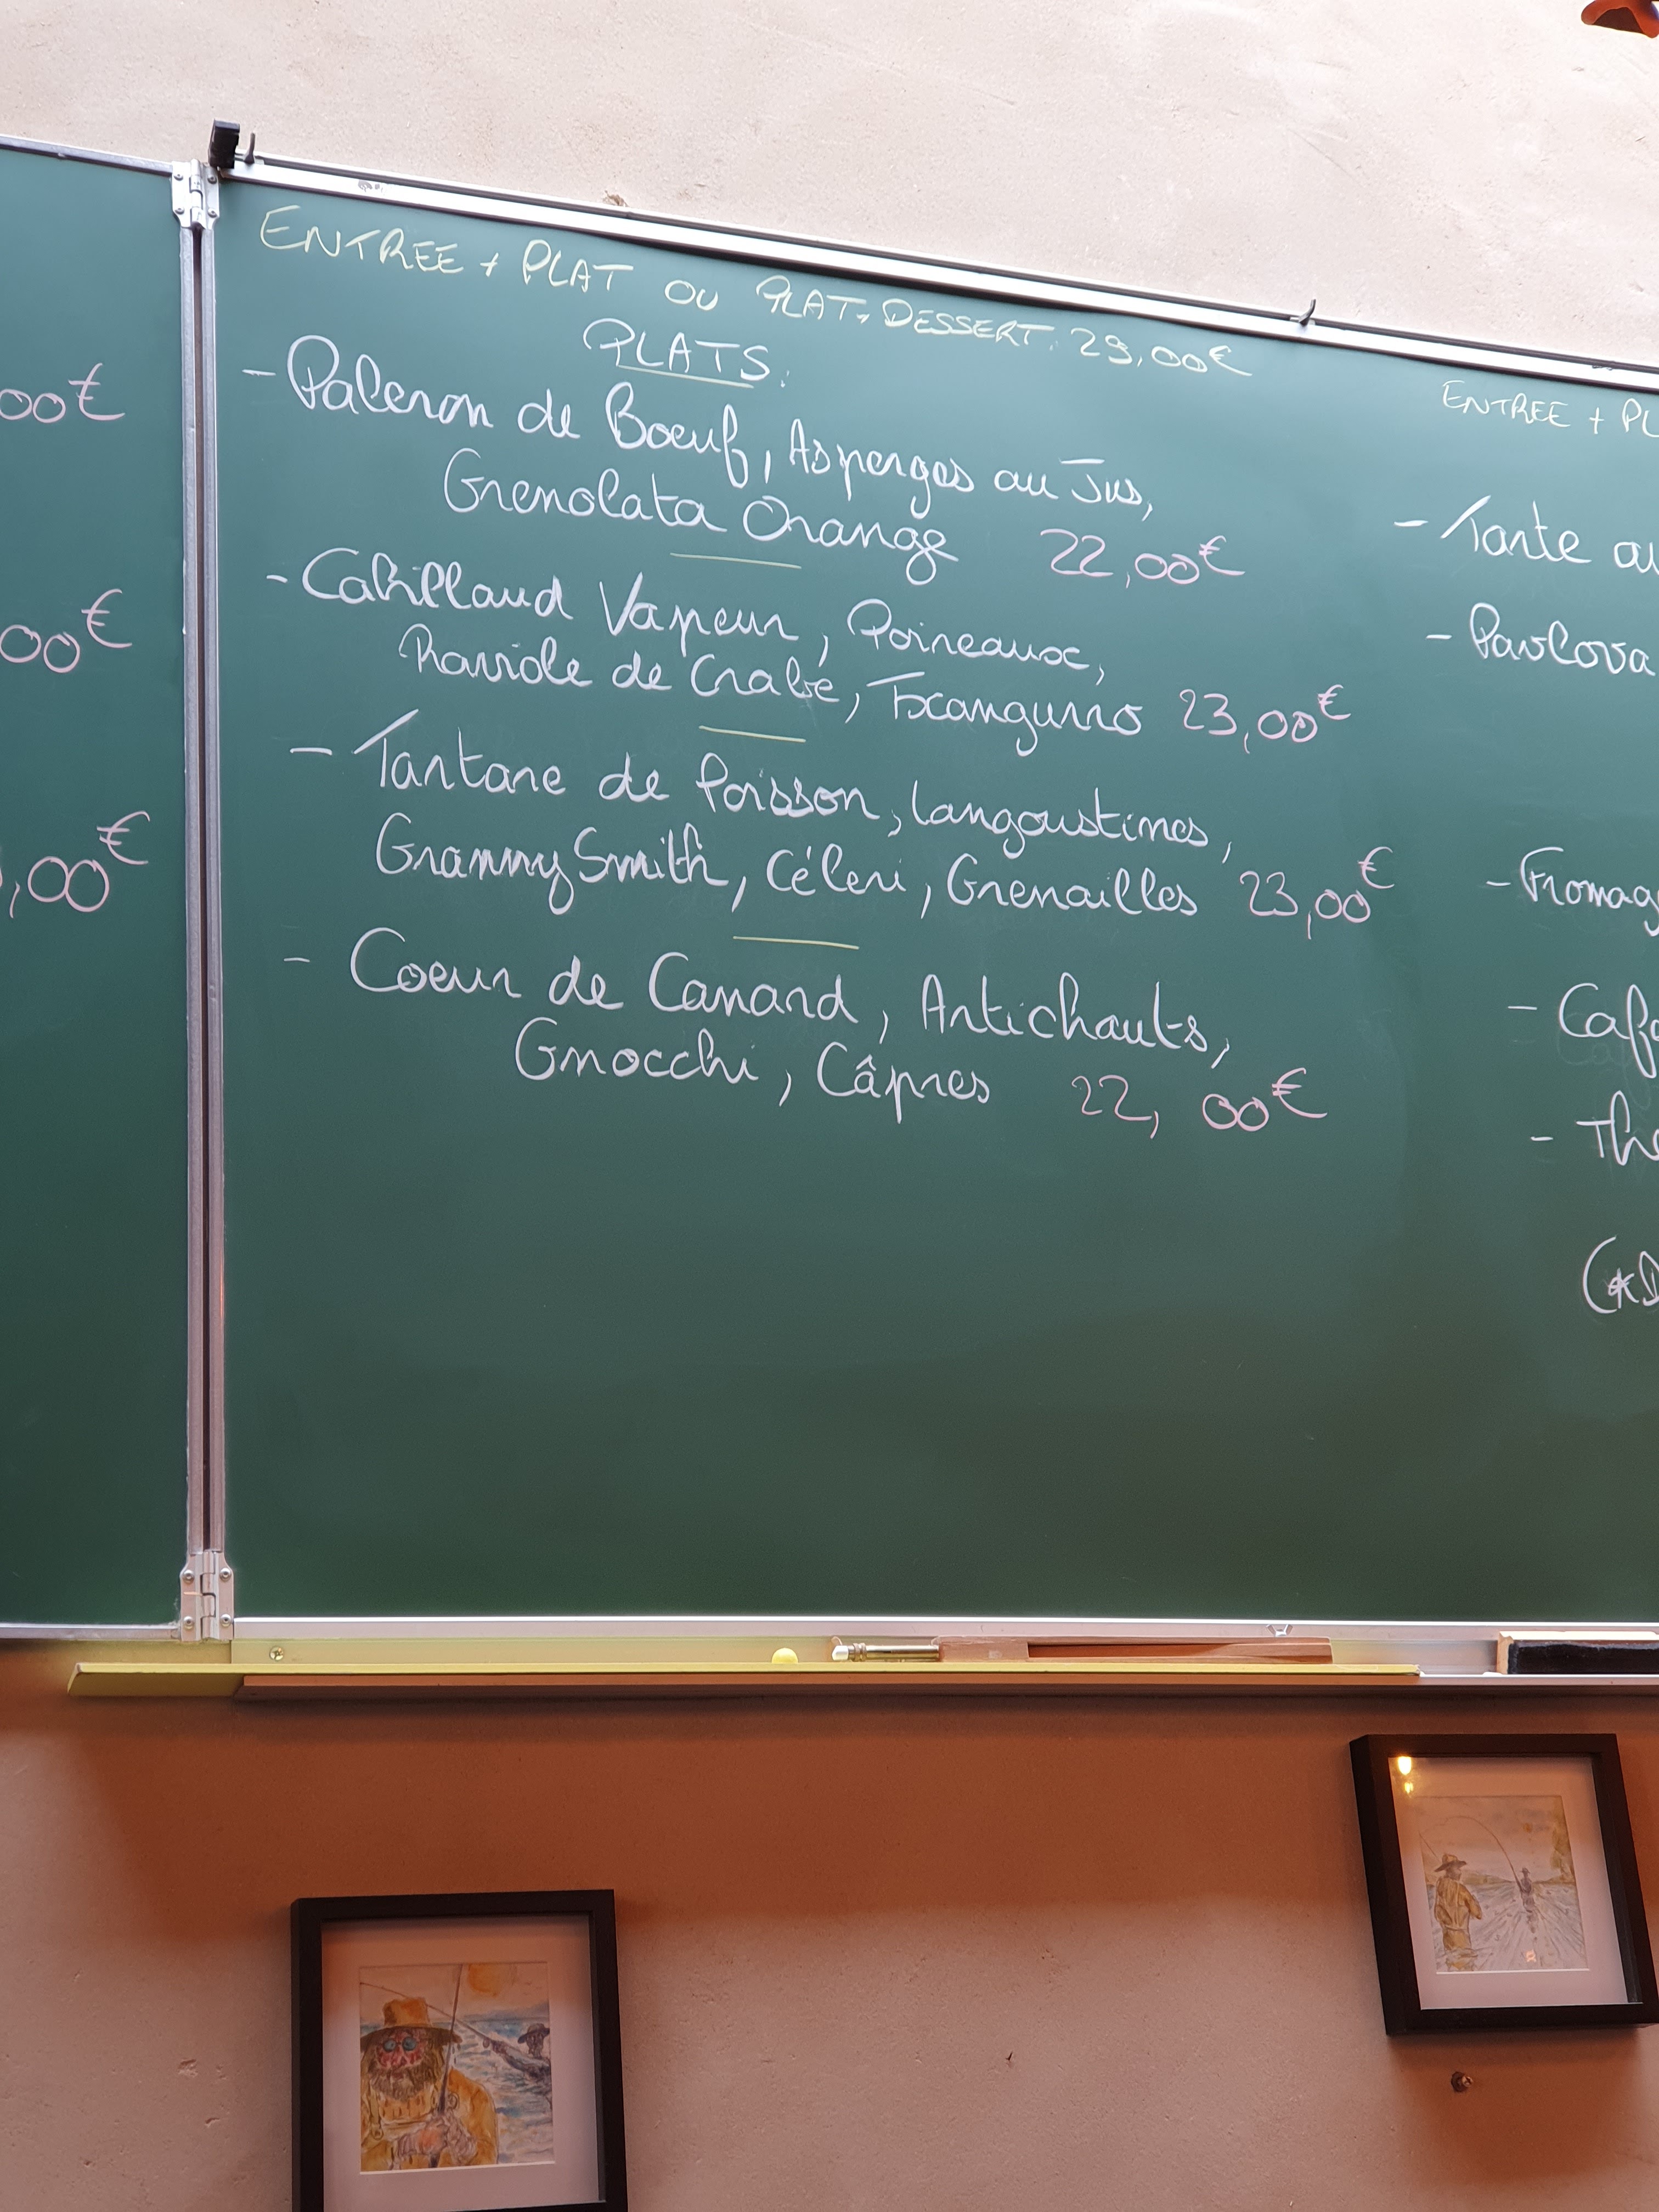 00€
00€
,00€
ENTREE + PLAT OU PLAT + DESSERT : 29,00€
PLATS :
- Paleron de Boeuf, Asperges au Jus,
Gremolata Orange 22,00€
- Cabillaud Vapeur, Poireaux,
Raviole de Crabe, Txangurro 23,00€
- Tartare de Poisson, Langoustines,
Granny Smith, Céleri, Grenailles 23,00€
- Coeur de Canard, Artichauts,
Gnocchi, Câpres 22,00€
ENTREE + PL
- Tarte au
- Pavlova
- Fromag
- Caf
- Thé
(*D